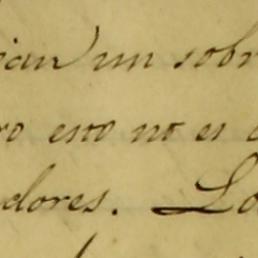 ican un sobr
ro esto no es
dores. Lo